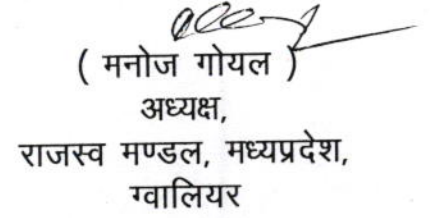 ( मनोज गोयल )
अध्यक्ष,
राजस्व मण्डल, मध्यप्रदेश,
ग्वालियर